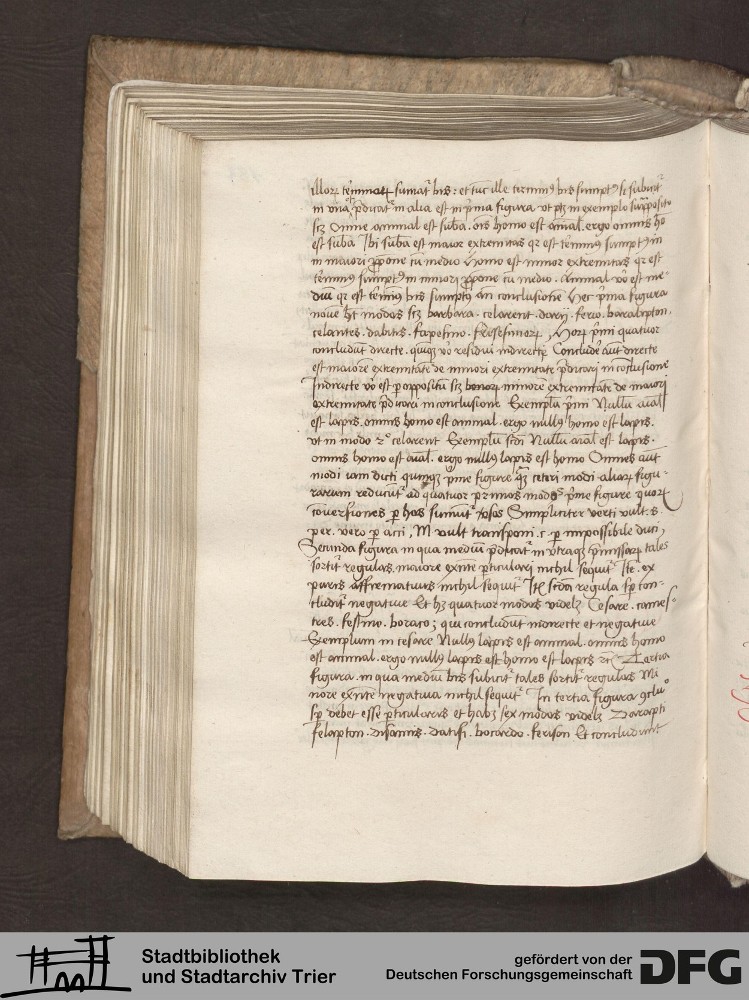 illorum terminorum sumatur bis : et tunc ille terminus bis sumptus si subicitur
in una predicatur in alia est in prima figura ut patet in exemplo supposito
scz Omne animal est suba . ois homo est animal . ergo omnis ho
est suba Ibi suba est maior extremitas qr est terminus sumptus in
in maiori propone cum medio Homo est minor extremitas qr est
terminus sumptus in minori propone cum medio . Animal vero est me-
dium qr est terminus bis sumptus an conclusione Hec prima figura
novem habet modos scz barbara . celarent . darij . ferio . baralipton .
celantes . dabitis . fapesmo . frisesomorum , Horum primi quatuor
concludunt directe . quinque vero residui indirecte Concludere autem directe
est maiorem extremitatem de minori extremitate predicari in conclusione
Indirecte vero est per oppositum scz minorem extremitatem de maiori
extremitate predicari in conclusione Exemplum primi Nullum aial
est lapis . omnis homo est animal . ergo nullus homo est lapis .
ut in modo 2o celarent Exemplum secundi Nullum animal est lapis .
omnis homo est aial . ergo nullus lapis est homo Omnes autem
modi iam dicti quinque prime figure et ceteri modi aliarum figu-
rarum reducuntur ad quatuor primos modos prime figure quorum
conversiones per has sumuntur Simpliciter verti vult . s .
per . vero per acci , M . vult transponi . c . per impossibile duci ,
Secunda figura in qua medium predicatur in utraque premissarum tales
sortitur regulas , maiore existente particulari nichil sequitur Item . ex
puris affirmativis nichil sequitur Item secunda regula semper con-
cluditur negative Et habet quatuor modos videlz Cesare . cames-
tres . festino . baroco ; qui concludunt indirecte et negative
Exemplum in cesare Nullus lapis est animal . omnis homo
est animal . ergo nullus lapis est homo est lapis etc Tertia
figura . in qua medium bis subicitur tales sortitur regulas Mi
nore existente negativa nichil sequitur In tertia figura conclusio
semper debet esse particularis et habet sex modos videlz Darapti
felapton . disamis . datisi . bocardo . ferison Et concludunt
Stadtbibliothek
und Stadtarchiv Trier
gefördert von der
Deutschen Forschungsgemeinschaft
DFG